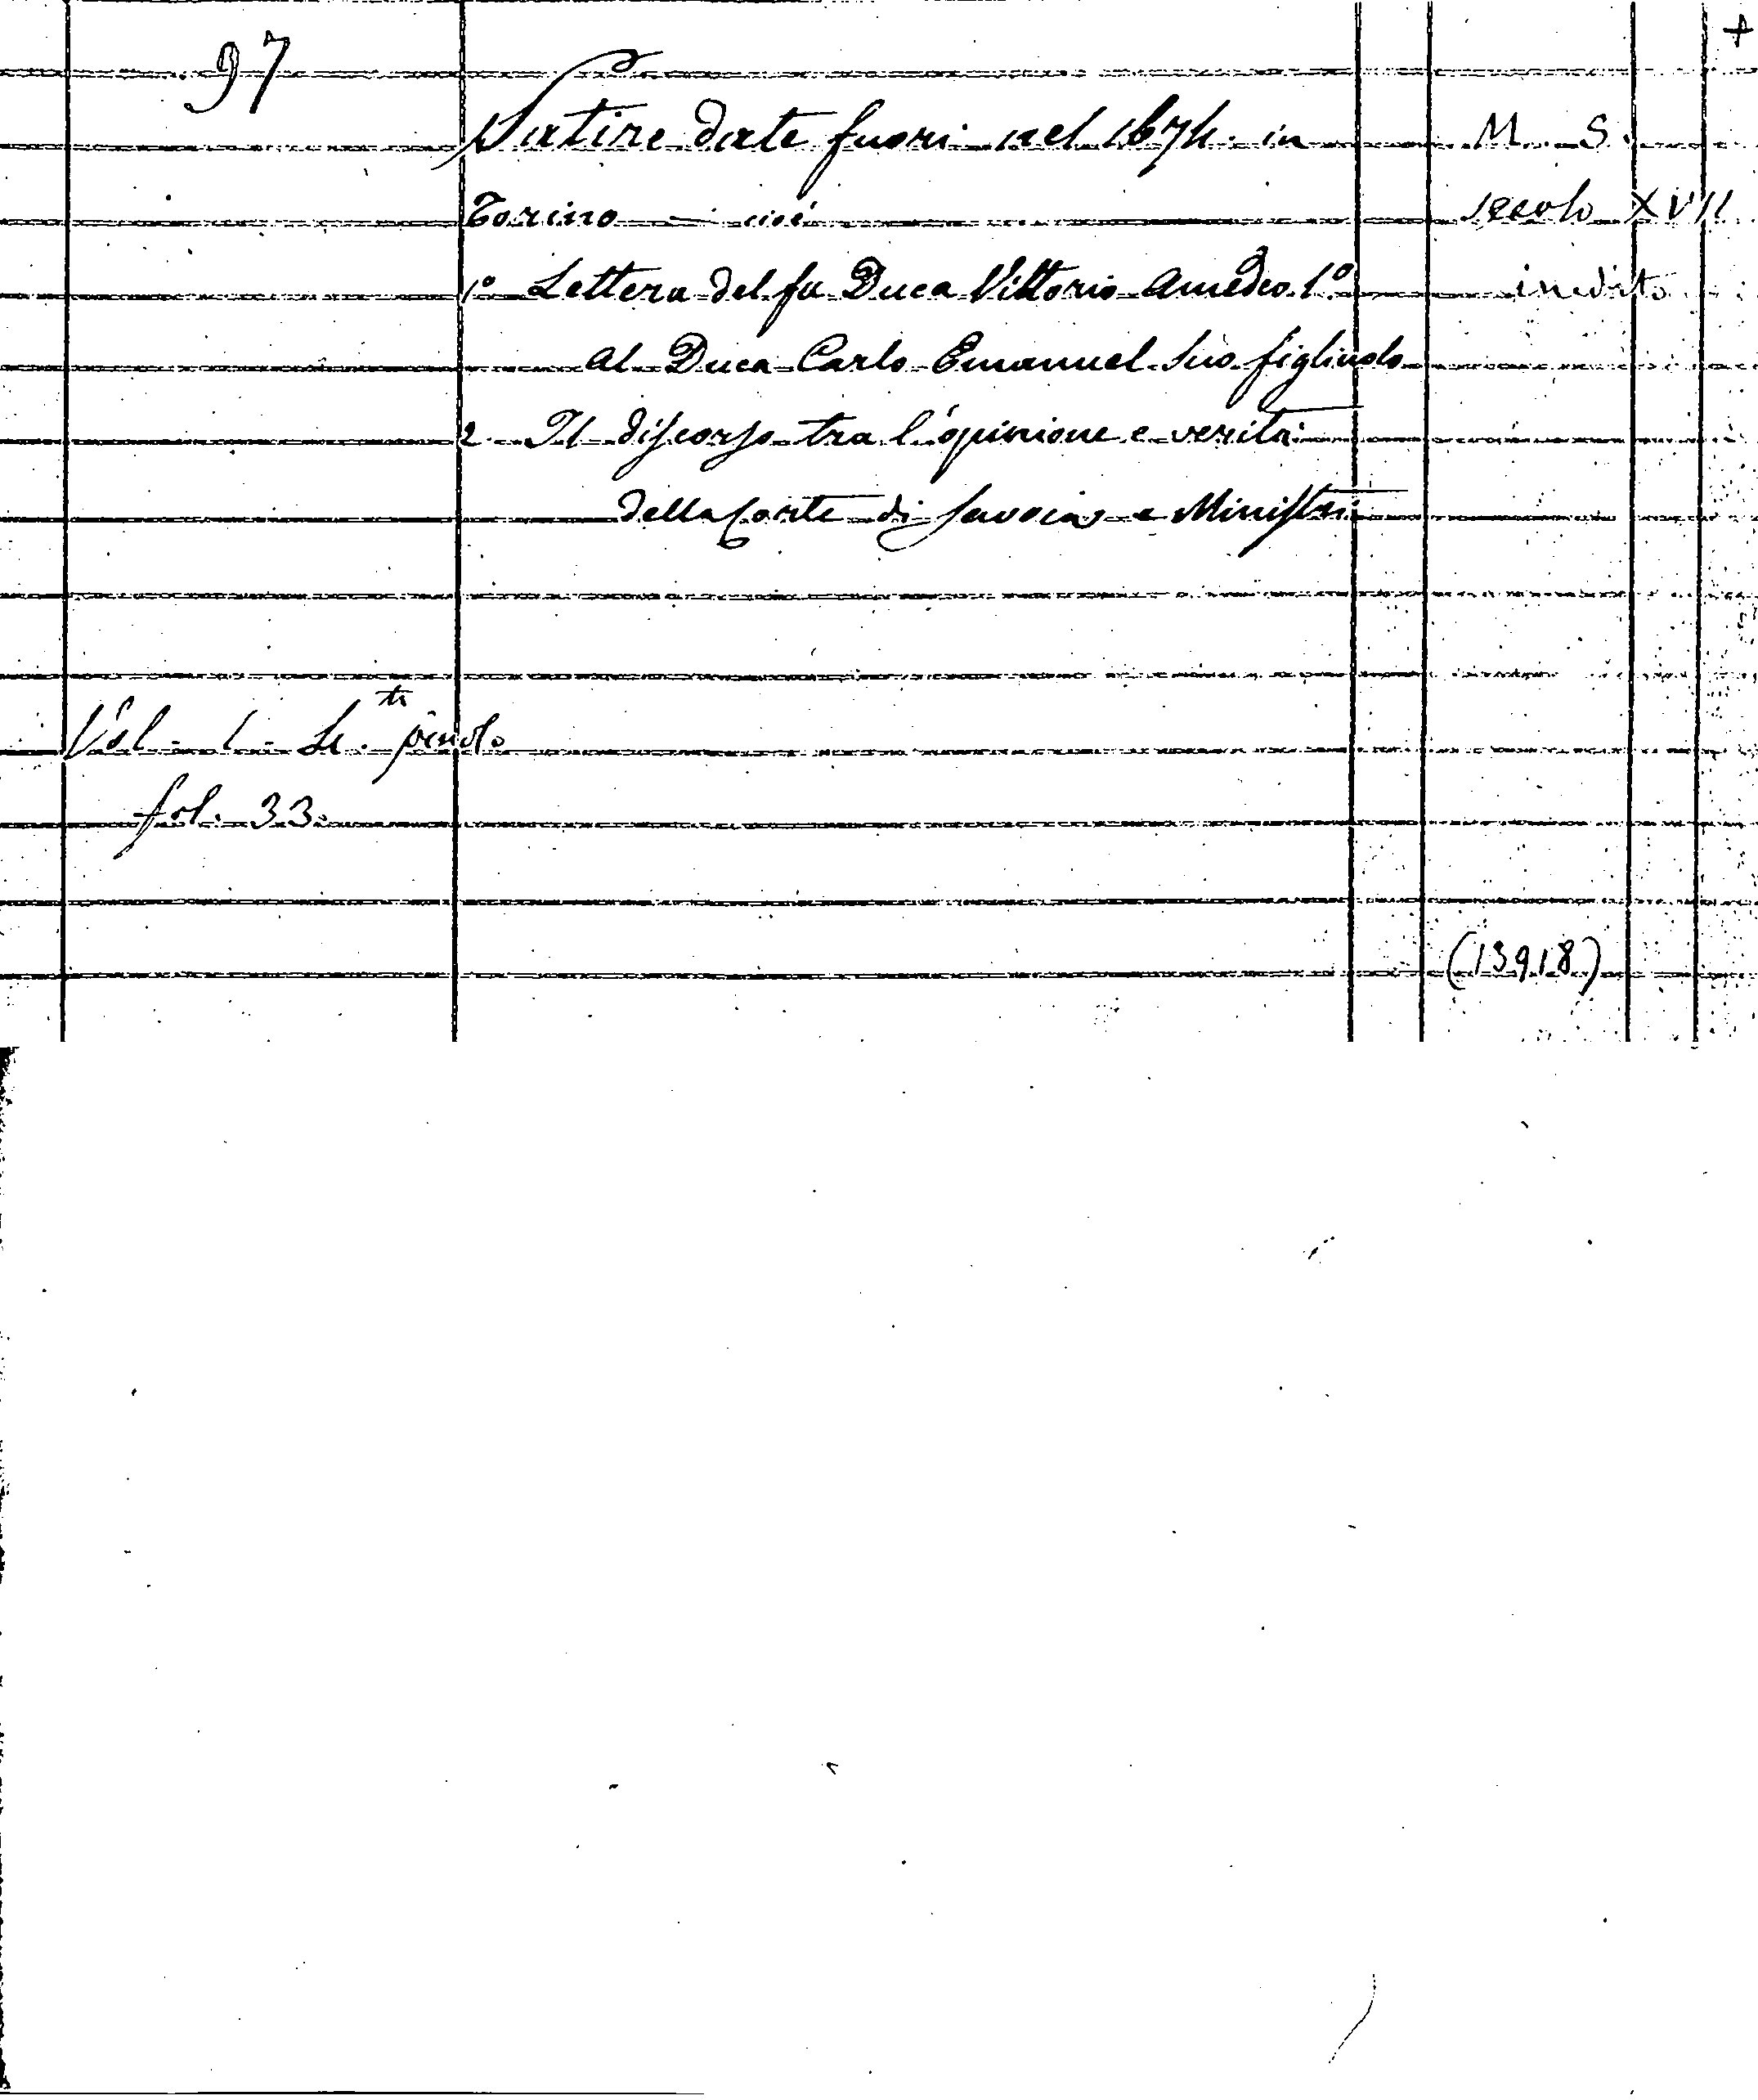 97
+
Satire date fuori nel 1674 in
M. S.
Torino — cioè
secolo XVII
1º Lettera del fu Duca Vittorio Amedeo 1º
inedito
al Duca Carlo Emanuel suo figliuolo
2. Il discorso tra l'opinione e verità
della Corte di Savoia e Ministri
Vol. 1
fol. 33.
(13918)